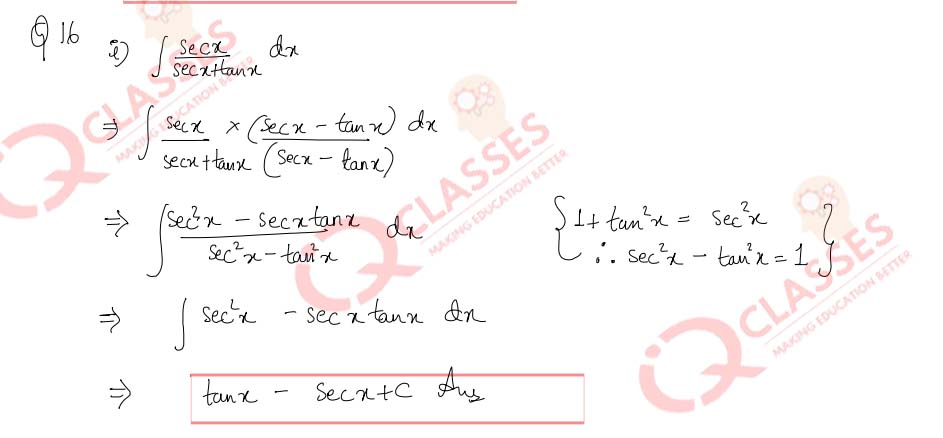 Q 16 i) ∫ secx/(secx+tanx) dx
⇒ ∫ secx/(secx+tanx) × (secx - tanx)/(secx - tanx) dx
⇒ ∫ (sec²x - secxtanx)/(sec²x - tan²x) dx { 1+tan²x = sec²x
∴ sec²x - tan²x = 1 }
⇒ ∫ sec²x - secxtanx dx
⇒ tanx - secx+C Ans
IQ CLASSES
MAKING EDUCATION BETTER
IQ CLASSES
MAKING EDUCATION BETTER
IQ CLASSES
MAKING EDUCATION BETTER